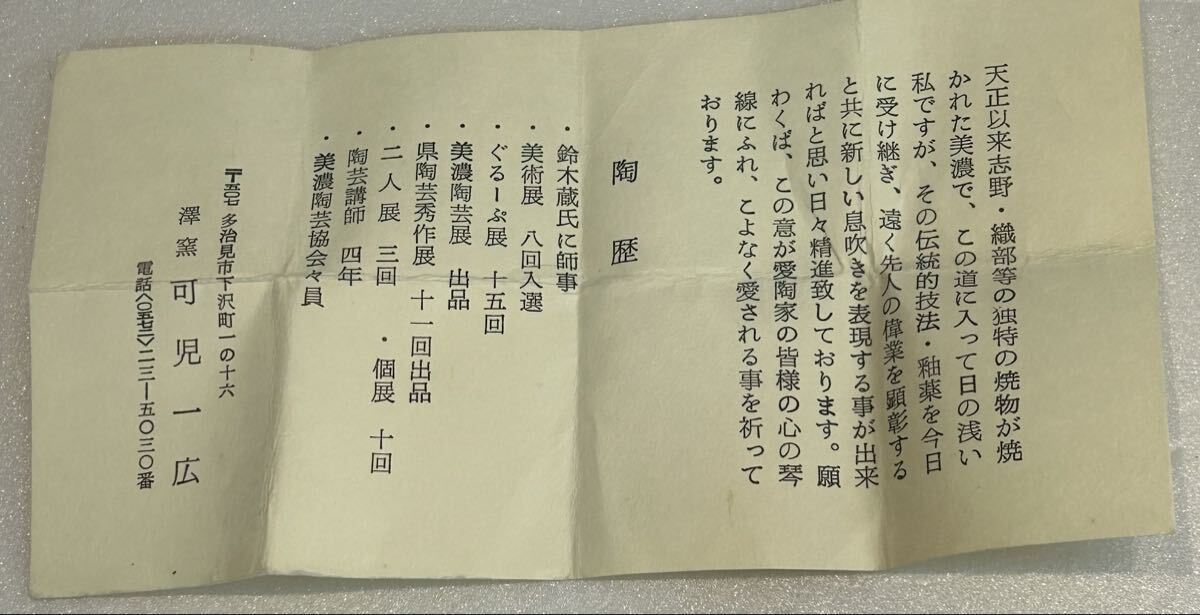 天正以来志野・織部等の独特の焼物が焼
かれた美濃で、この道に入って日の浅い
私ですが、その伝統的技法・釉薬を今日
に受け継ぎ、遠く先人の偉業を顕彰する
と共に新しい息吹きを表現する事が出来
ればと思い日々精進致しております。願
わくば、この意が愛陶家の皆様の心の琴
線にふれ、こよなく愛される事を祈って
おります。
陶歴
・鈴木蔵氏に師事
・美術展 八回入選
・ぐるーぷ展 十五回
・美濃陶芸展 出品
・県陶芸秀作展 十一回出品
・二人展 三回 ・個展 十回
・陶芸講師 四年
・美濃陶芸協会々員
〒五〇七 多治見市下沢町一の十六
澤窯 可児一広
電話〈〇五七二〉二三―五〇三〇番